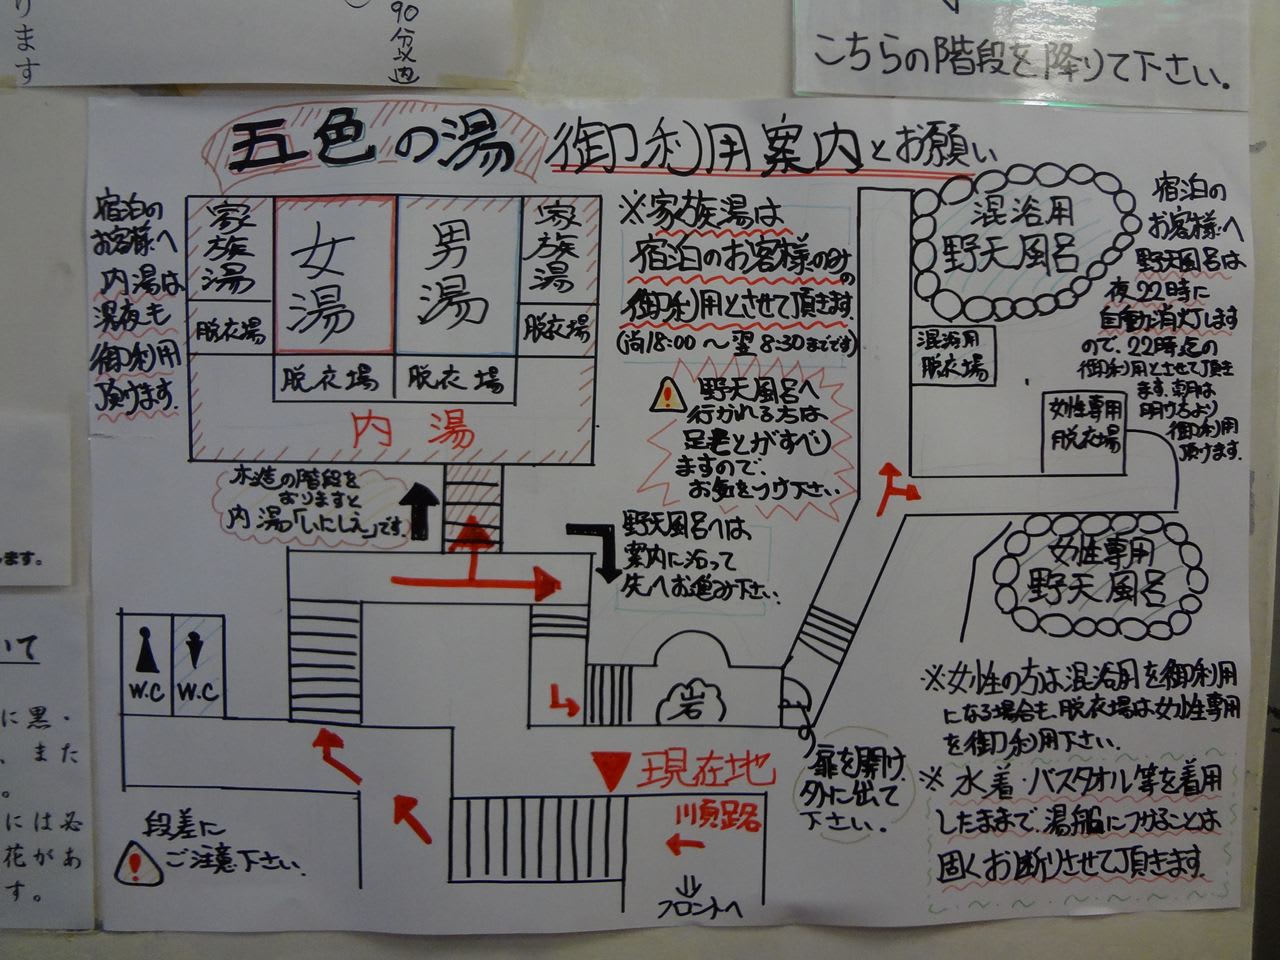 ります
90分以内
こちらの階段を降りて下さい。
五色の湯 御利用案内とお願い
宿泊の
お客様へ
内湯は
深夜も
御利用
頂けます。
家族湯
女湯
男湯
家族湯
脱衣場
脱衣場
脱衣場
脱衣場
内湯
※家族湯は
宿泊のお客様のみの
御利用とさせて頂きます
(尚18:00～翌8:30までです)
野天風呂へ
行かれる方は
足もとがすべり
ますので、
お気をつけ下さい。
混浴用
野天風呂
混浴用
脱衣場
女性専用
脱衣場
宿泊の
お客様へ
野天風呂は
夜22時に
自動が消灯します
ので、22時迄の
御利用とさせて頂き
ます。朝は
明けるより
御利用
頂けます。
木造の階段を
おりますと
内湯「いにしえ」です。
野天風呂へは
案内に沿って
先へお進み下さい。
女性専用
野天風呂
W.C
W.C
岩
現在地
順路
フロントへ
扉を開け
外に出て
下さい。
段差に
ご注意下さい。
※女性の方は混浴用を御利用
になる場合も、脱衣場は女性専用
を御利用下さい。
※水着・バスタオル等を着用
したままで、湯船につかることは
固くお断りさせて頂きます。
ます。
いて
に黒・
、また
。
には必
花があ
す。